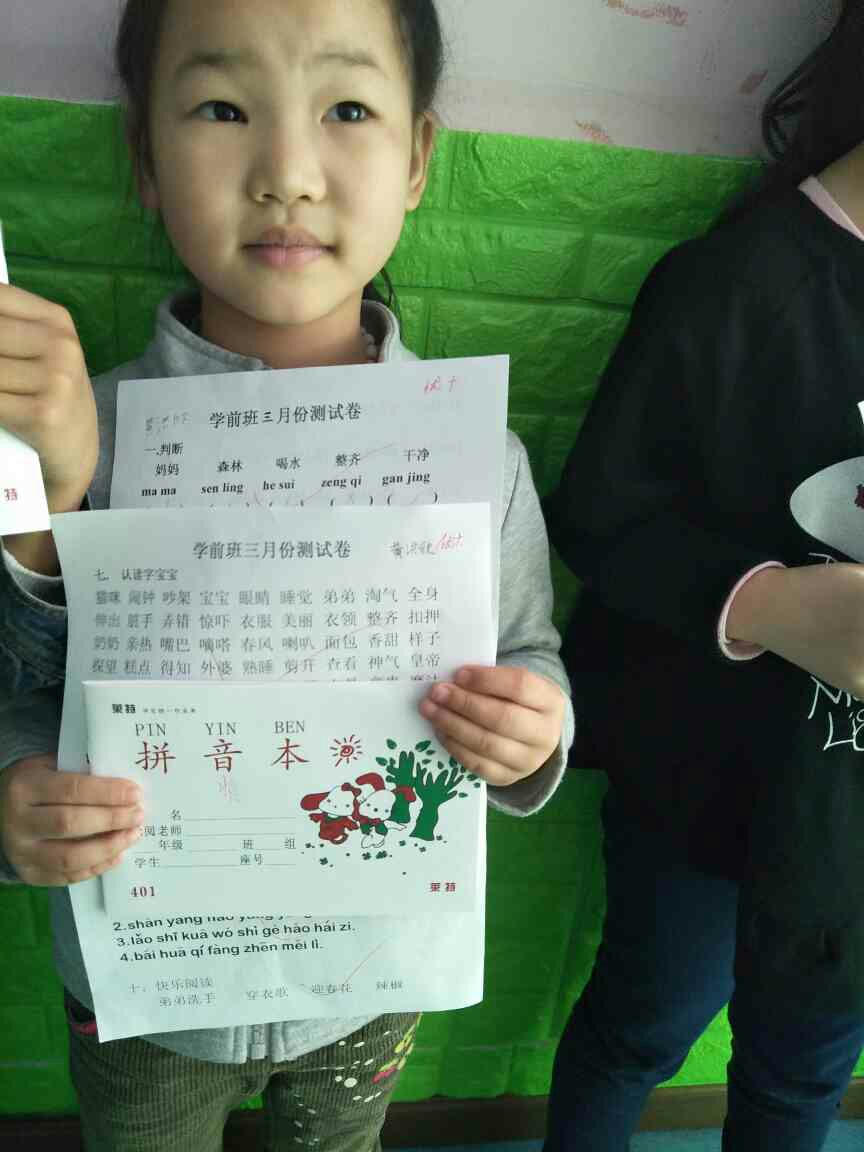 优+
学前班三月份测试卷
一.判断
妈妈 森林 喝水 整齐 干净
ma ma sen ling he sui zeng qi gan jing
学前班三月份测试卷
优+
七、认读字宝宝
猫咪 闹钟 吵架 宝宝 眼睛 睡觉 弟弟 淘气 全身
伸出 脏手 弄错 惊吓 衣服 美丽 衣领 整齐 扣押
奶奶 亲热 嘴巴 嘀嗒 春风 喇叭 面包 香甜 样子
探望 糕点 得知 外婆 熟睡 剪开 查看 神气 皇帝
莱特
PIN YIN BEN
拼音本
名
阅老师
年级 班 组
学生 座号
401 莱特
3.lǎo shī kuā wó shì gè hāo hái zi.
4.bái huā qí fàng zhēn měi lì.
十、快乐阅读
弟弟洗手 穿衣歌 迎春花 辣椒
特